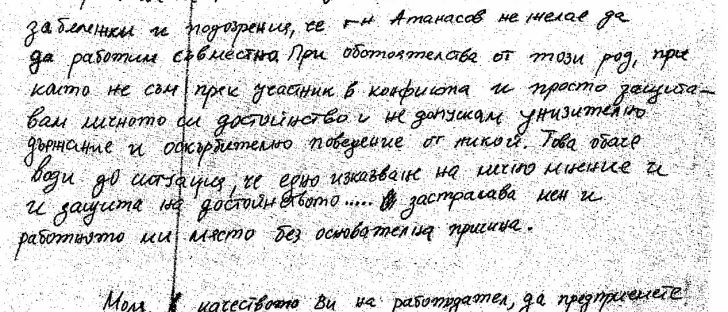 забележки и подозрения, че г-н Атанасов не желае да
да работим съвместно. При обстоятелства от този род, при
които не съм пряк участник в конфликта и просто защита-
вам личното си достойнство и не допускам унизително
държание и оскърбително поведение от никой. Това обаче
води до ситуация, че едно изказване на лично мнение и
и защита на достойнството..... застрашава мен и
работното ми място без основателна причина.
Моля, в качеството Ви на работодател, да предприемете